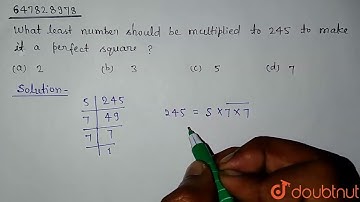 647828978
What least number should be multiplied to 245 to make
it a perfect square ?
(a) 2 (b) 3 (c) 5 (d) 7
Solution-
5 | 245
7 | 49
7 | 7
1
245 = 5 × 7 × 7
doubtnut